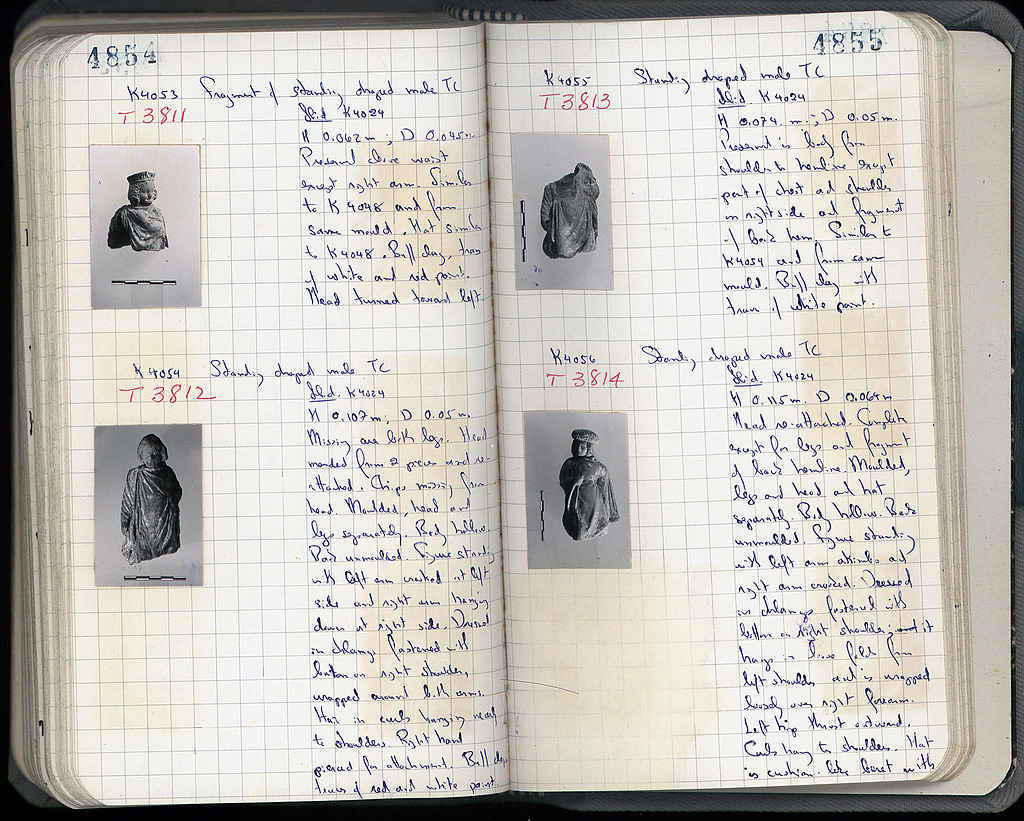 4854
K4053 Fragment of standing draped male TC
T 3811
Ibid K4024
H 0.062m; D 0.045m.
Preserved above waist
except right arm. Similar
to K4048 and from
same mould. Hat similar
to K4048. Buff clay, traces
of white and red paint.
Head turned toward left.
K4054 Standing draped male TC
T 3812
Ibid. K4024
H 0.107m; D 0.05m.
Missing are both legs. Head
mended from 2 pieces and re-
attached. Chips missing from
head. Moulded, head and
legs separately. Body hollow.
Back unmoulded. Figure standing
with left arm crooked at left
side and right arm hanging
down at right side. Dressed
in chlamys fastened with
button on right shoulder,
wrapped around both arms.
Hair in curls hanging nearly
to shoulders. Right hand
pierced for attachment. Buff clay
traces of red and white paint.
4855
K4055 Standing draped male TC
T 3813
Ibid K4024
H 0.074 m.; D 0.05m.
Preserved is body from
shoulders to hemline except
part of chest and shoulder
on right side and fragment
of back hem. Similar to
K4054 and from same
mould. Buff clay with
traces of white paint.
K4056 Standing draped male TC
T 3814
Ibid. K4024
H 0.115m. D 0.064m
Head re-attached. Complete
except for legs and fragment
of back hemline. Moulded,
legs and head and hat
separately. Body hollow. Back
unmoulded. Figure standing
with left arm akimbo and
right arm crooked. Dressed
in chlamys fastened with
button on right shoulder; and it
hangs in loose folds from
left shoulder and is wrapped
loosely over right forearm.
Left hip thrust outward.
Curls hang to shoulders. Hat
is cushion-like beret with